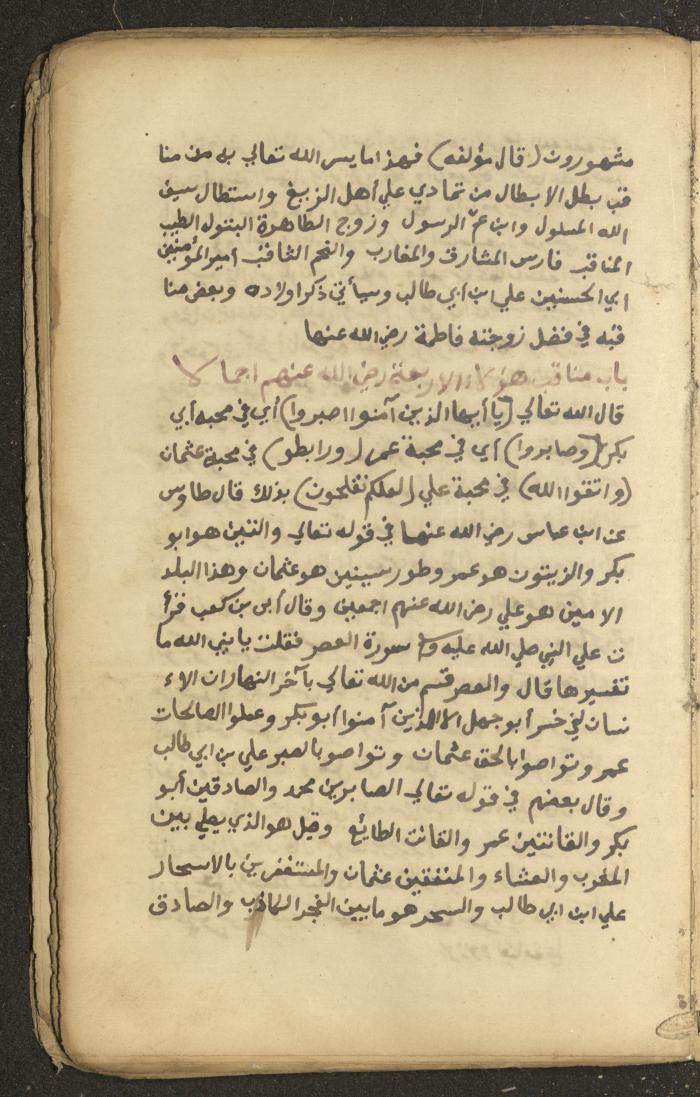 مشهورون (قال مؤلفه) فهذا ما يسر الله تعالي به من منا
قب بطل الابطال من تمادي علي أهل الزيغ واستطال سيف
الله المسلول وابن عمّ الرسول وزوج الطاهرة البتول الطيب
المناقب فارس المشارق والمغارب والنجم الثاقب أمير المؤمنين
ابي الحسنين علي ابن أبي طالب وسيأتي ذكر اولاده وبعض منا
قبه في فضل زوجته فاطمة رضي الله عنها
باب مناقب هؤلاء الاربعة رضي الله عنهم اجمالا
قال الله تعالي (يا أيها الذين آمنوا اصبروا) أي في محبة أبي
بكر (وصابروا) أي في محبة عمر (ورابطو) في محبة عثمان
(واتقوا الله) في محبة علي (لعلكم تفلحون) بذلك قال طاوس
عن ابن عباس رضي الله عنهما في قوله تعالي والتين هو ابو
بكر والزيتون هو عمر وطور سينين هو عثمان وهذا البلد
الامين هو علي رضي الله عنهم اجمعين وقال أبي بن كعب قرأ
ت علي النبي صلي الله عليه وسلم سورة العصر فقلت يا نبي الله ما
تفسيرها قال والعصر قسم من الله تعالي بآخر النهار ان الاء
نسان لفي خسر أبو جهل الا الذين آمنوا أبو بكر وعملوا الصالحات
عمر وتواصوا بالحق عثمان وتواصو بالصبر علي بن ابي طالب
وقال بعضهم في قوله تعالي الصابرين محمد والصادقين أبو
بكر والقانتين عمر والقانت الطائع وقيل هو الذي يصلي بين
المغرب والعشاء والمنفقين عثمان والمستغفرين بالاسحار
علي ابن ابي طالب والسحر هو ما بين الفجر الكاذب والصادق